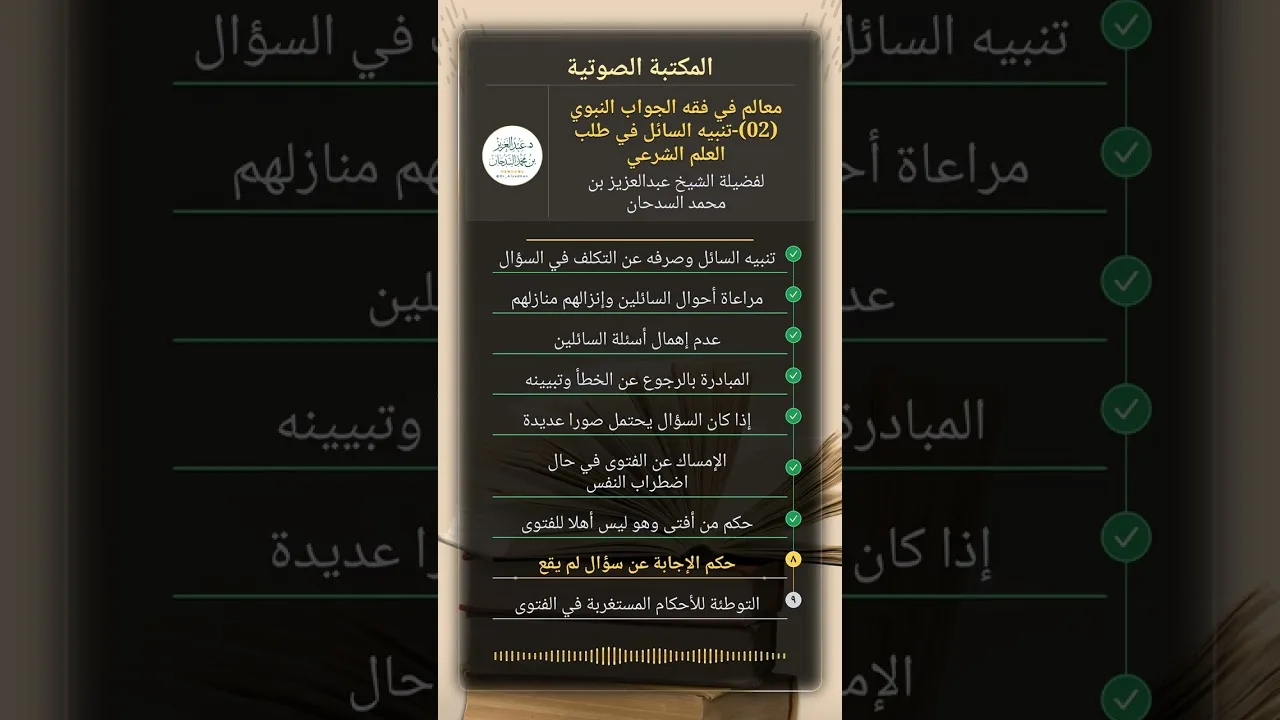 المكتبة الصوتية
معالم في فقه الجواب النبوي
(02)-تنبيه السائل في طلب
العلم الشرعي
لفضيلة الشيخ عبدالعزيز بن
محمد السدحان
د. عبدالعزيز
بن محمد السدحان
تنبيه السائل وصرفه عن التكلف في السؤال
مراعاة أحوال السائلين وإنزالهم منازلهم
عدم إهمال أسئلة السائلين
المبادرة بالرجوع عن الخطأ وتبيينه
إذا كان السؤال يحتمل صورا عديدة
الإمساك عن الفتوى في حال
اضطراب النفس
حكم من أفتى وهو ليس أهلا للفتوى
٨ حكم الإجابة عن سؤال لم يقع
٩ التوطئة للأحكام المستغربة في الفتوى
تنبيه السائل
في السؤال
مراعاة أح
هم منازلهم
عد
لين
المبادرة
وتبيينه
إذا كان
ا عديدة
الإم
حال